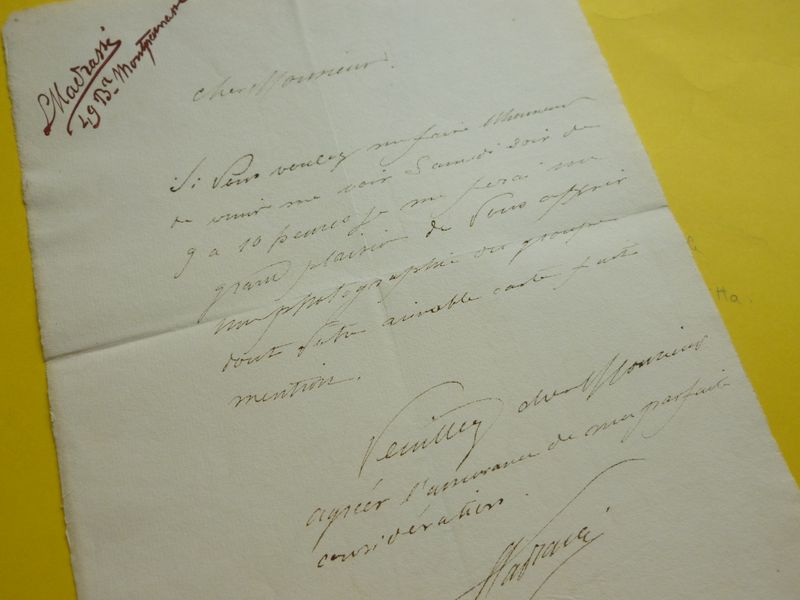 L Madrassi
49 Bd Montparnasse
cher Monsieur.
Si Vous voulez me faire l'honneur
de venir me voir Samedi soir de
9 a 10 heures je me ferai un
grand plaisir de Vous offrir
une photographie du groupe
dont Votre aimable carte fait
mention.
Veuillez cher Monsieur
agréer l'assurance de ma parfaite
considération.
LMadrassi
Ha.